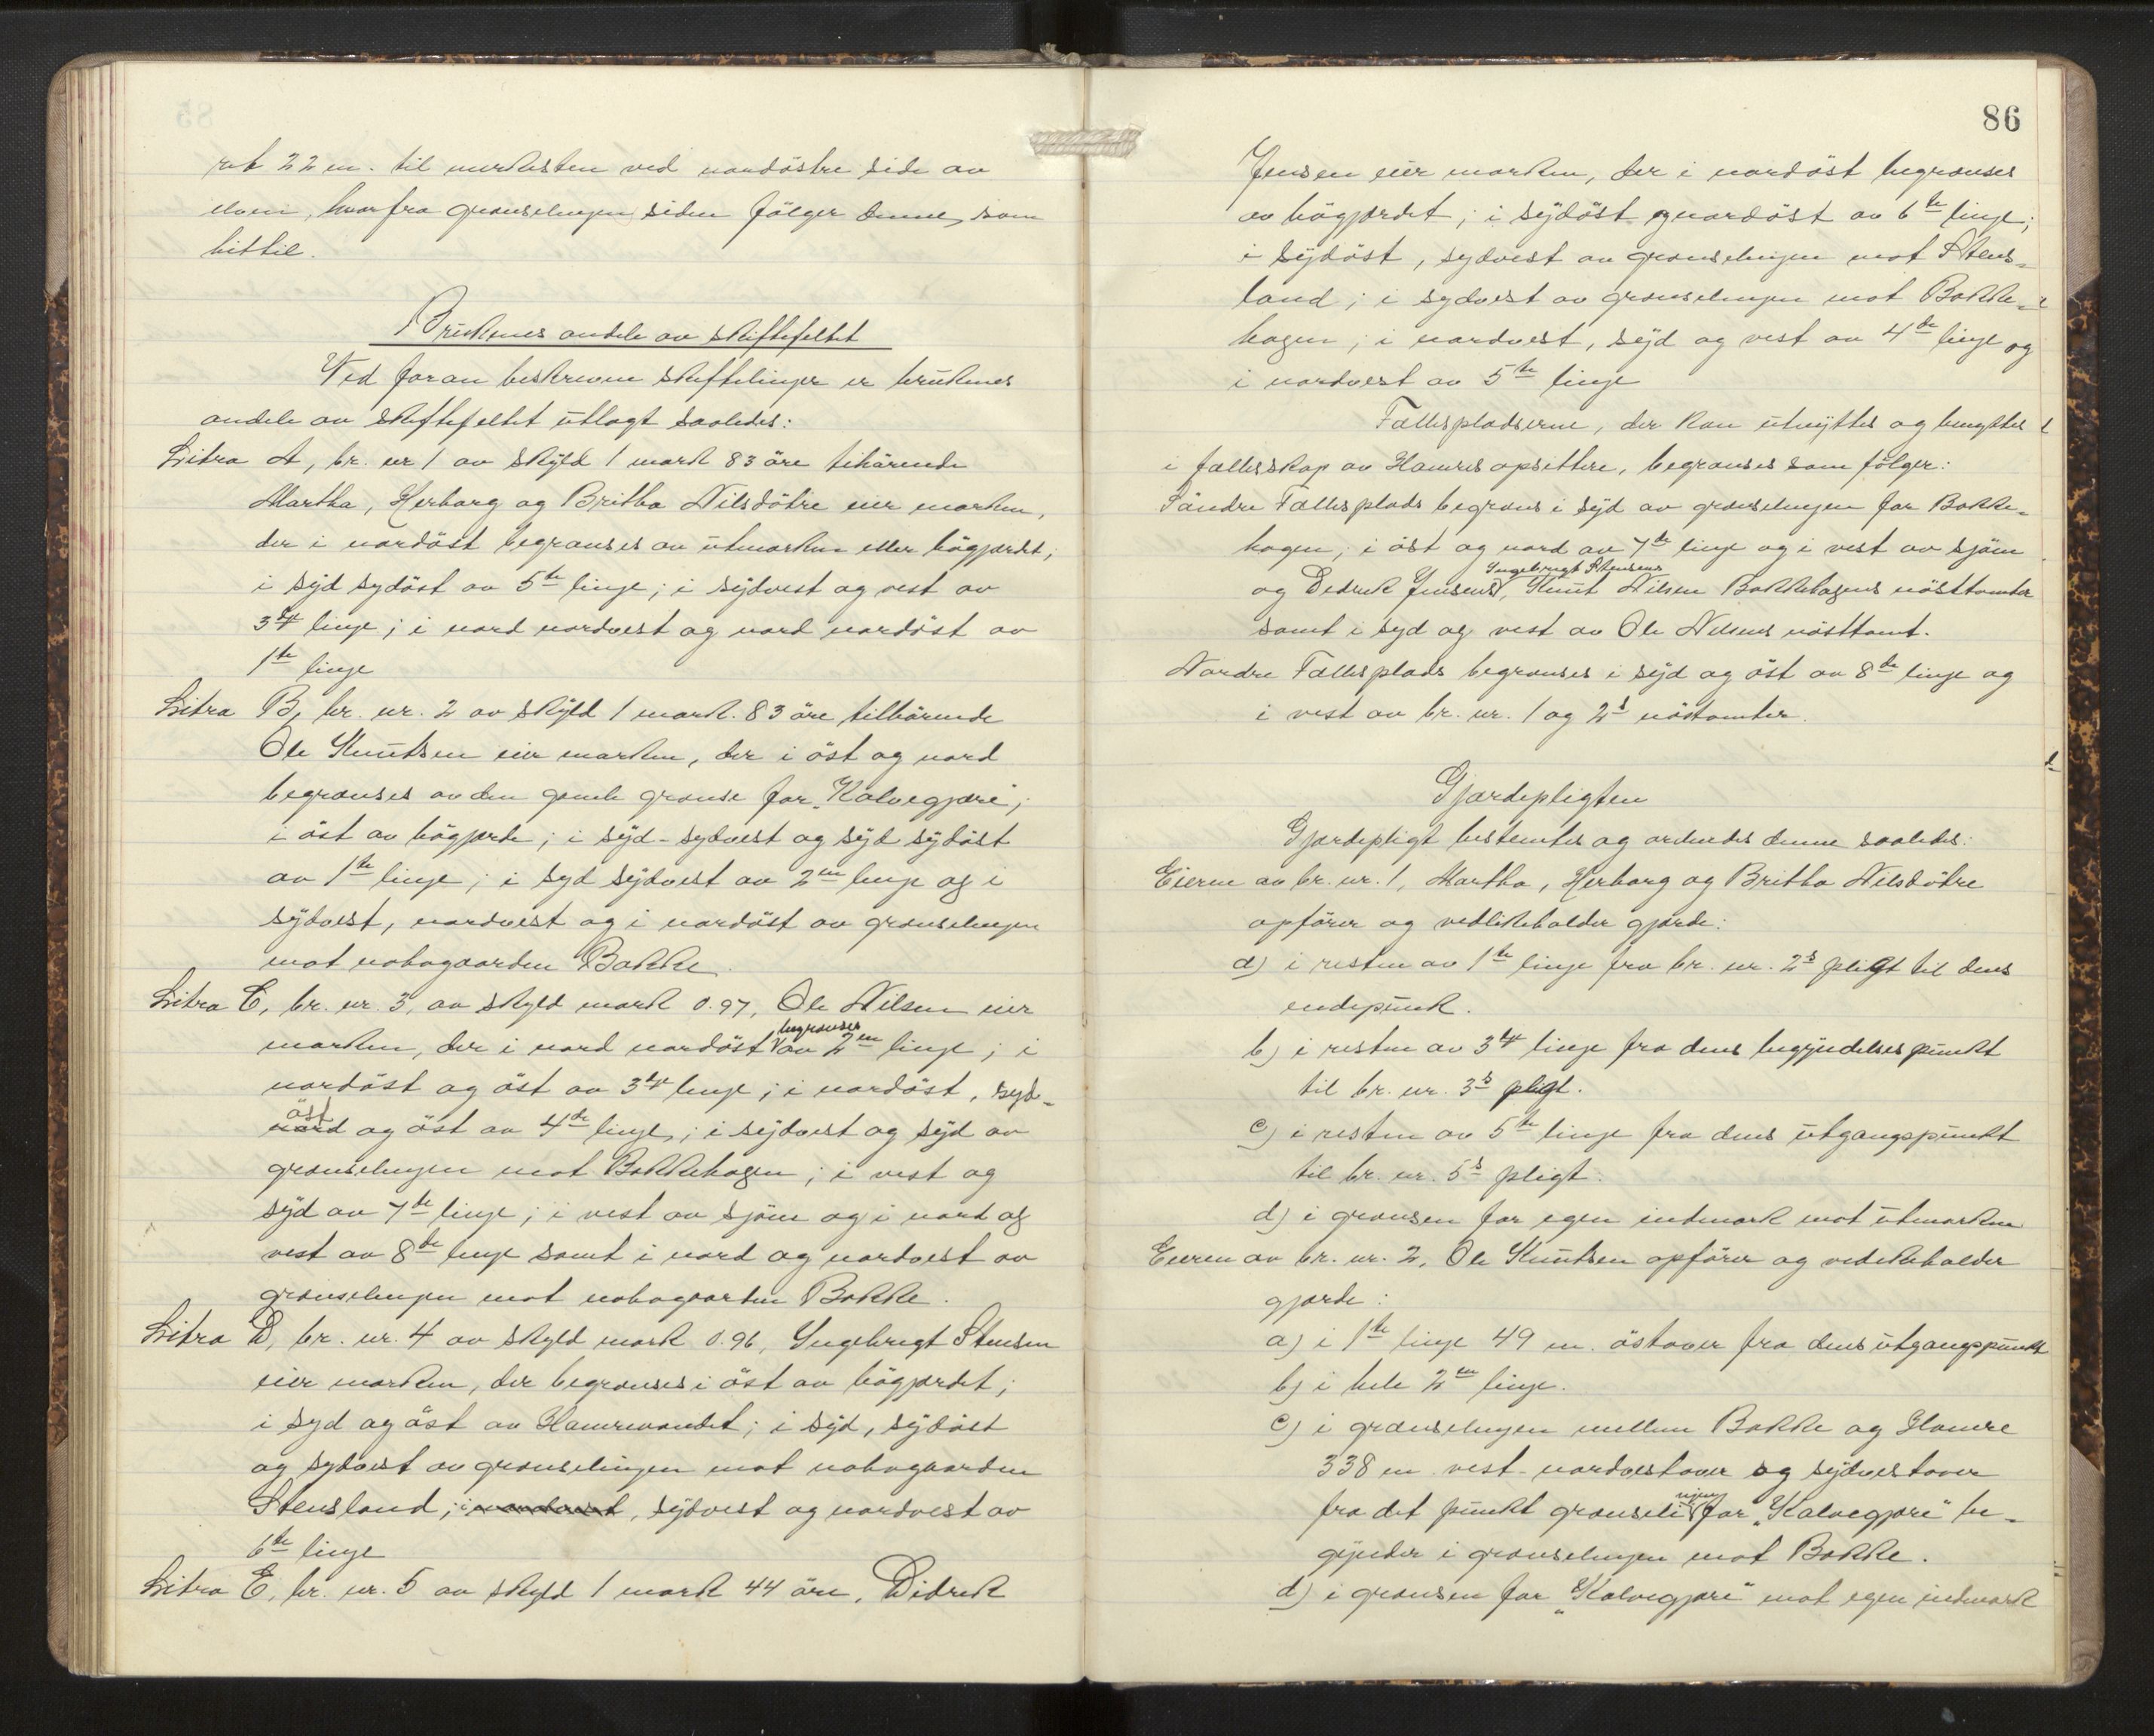 ret 22 m. til merkesten ved nordöstre side av
elven, hvorfra grænselinjen siden fölger denne, som
hittil.
Brukenes andele av skiftefeltet
Ved foran beskrevne skiftelinjer er brukenes
andele av skiftefeltet utlagt saaledes:
Litra A, br. nr 1 av skyld 1 mark 83 öre tihörende
Martha, Herborg og Britha Nilsdötre eier marken,
der i nordöst begrænses av utmarken eller bögjærdet;
i syd sydöst av 5te linje; i sydvest og vest av
3die linje; i nord nordvest og nord nordöst av
1te linje
Litra B, br. nr. 2 av skyld 1 mark. 83 öre tilhörende
Ole Knutsen eier marken, der i öst og nord
begrænses av den gamle grænse for „Kalvegjære";
i öst av bögjærde; i syd-sydvest og syd sydöst
av 1te linje; i syd sydvest av 2en linje og i
sydvest, nordvest og i nordöst av grænselinjen
mot nabogaarden Bakke.
Litra C, br. nr. 3, av skyld mark 0.97, Ole Nilsen eier
marken, der i nord nordöst begrænses av 2en linje; i
nordöst og öst av 3die linje; i nordöst, syd-
öst nord og öst av 4de linje; i sydvest og syd av
grænselinjen mot Bakkehagen; i vest og
syd av 7de linje; i vest av sjöen og i nord og
vest av 8de linje samt i nord og nordvest av
grænselinjen mot nabogaarden Bakke.
Litra D, br. nr. 4 av skyld mark 0.96, Ingebrigt Stensen
eier marken, der begrænses i öst av bögjærdet;
i syd og öst av Hamrevandet; i syd, sydöst
og sydvest av grænselinjen mot nabogaarden
Stensland; i nordvest, sydvest og nordvest av
6te linje
Litra E, br. nr. 5 av skyld 1 mark 44 öre, Didrik
86
Jensen eier marken, der i nordöst begrænses
av bögjærdet; i sydöst og nordöst av 6te linje;
i sydöst, sydvest av grænselinjen mot Stens-
land; i sydvest av grænselinjen mot Bakke-
hagen; i nordvest, syd og vest av 4de linje og
i nordvest av 5te linje
Fællespladserne, der kan utnyttes og benyttes
i fællesskap av Hamres opsittere, begrænses som fölger:
Söndre Fællesplads begræns i syd av grænselinjen for Bakke-
hagen; i öst og nord av 7de linje og i vest av sjöen
og Dedrik Jensens, Ingebrigt Stensens Knut Nilsen Bakkehagens nösttomter
samt i syd og vest av Ole Nilsens nösttomt.
Nordre Fællesplads begrænses i syd og öst av 8de linje og
i vest av br. nr. 1 og 2s nöstomter.
Gjærdepligten
Gjærdepligt bestemtes og ordnedes denne saaledes:
Eierne av br. nr. 1, Martha, Herborg og Britha Nilsdötre
opförer og vedlikeholder gjærde:
a) i resten av 1te linje fra br. nr. 2s pligt til dens
endepunk.
b) i resten av 3die linje fra dens begyndelsespunkt
til br. nr. 3s pligt.
c) i resten av 5te linje fra dens utgangspunkt
til br. nr. 5s pligt.
d) i grænsen for egen indmark mot utmarken
Eieren av br. nr. 2, Ole Knutsen opförer og vedlikeholder
gjærde:
a) i 1te linje 49 m. östover fra dens utgangspunkt
b) i hele 2en linje.
c) i grænselinjen mellem Bakke og Hamre
338 m vest-nordvestover og sydvestover
fra det punkt grænselinjen for „Kalvegjære" be-
gynder i grænselinjen mot Bakke.
d) i grænsen for „Kalvegjære" mot egen indmark